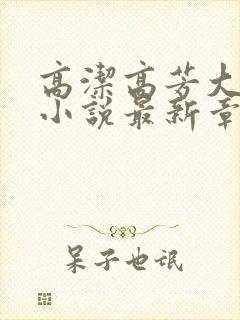 高潔高芳大
小說最新章
呆子也氓